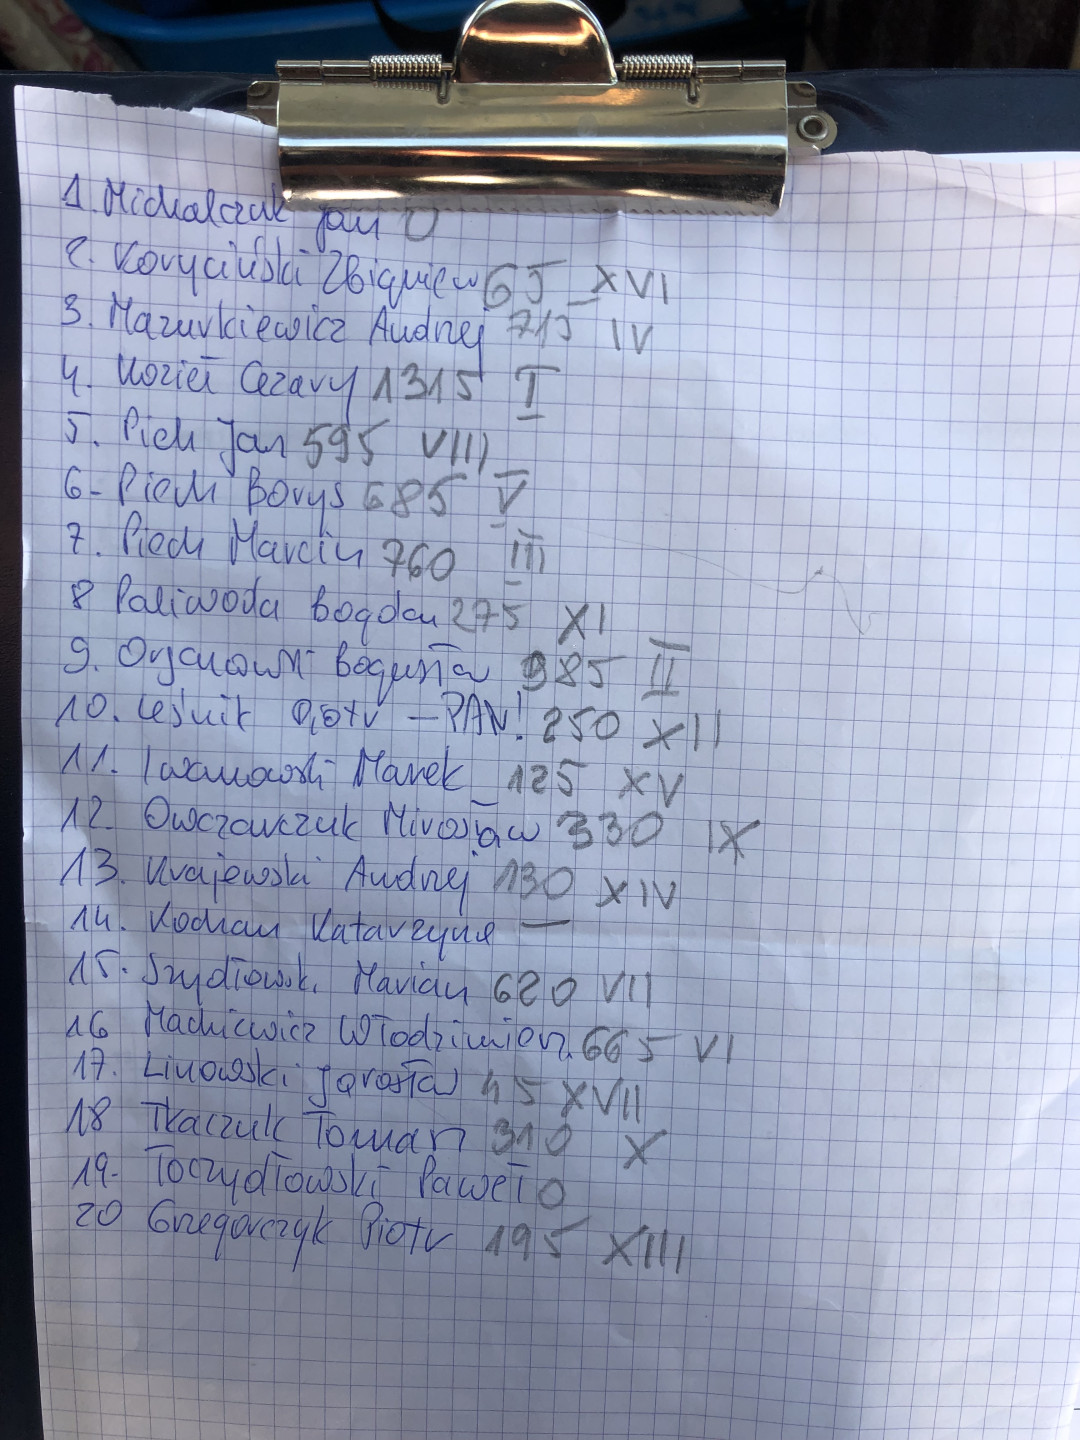 1. Michalczuk Jan 0
2. Koryciński Zbigniew 65 XVI
3. Mazurkiewicz Andrzej 715 IV
4. Kozieł Cezary 1315 I
5. Piech Jan 595 VIII
6- Piech Borys 685 V
7. Piech Marcin 760 III
8 Paliwoda Bogdan 275 XI
9. Bogusław 985 II
10. Leśnik Piotr - PAN! 250 XII
11. Marek 125 XV
12. Owczarczuk Mirosław 330 IX
13. Krajewski Andrzej 130 XIV
14. Kochan Katarzyna —
15. Szydłowski Marian 620 VII
16 Machiewicz Włodzimierz. 665 VI
17. Linowski Jarosław 45 XVII
18 Tkaczuk Tomasz 310 X
19- Toczydłowski Paweł 0
20 Grzegorczyk Piotr 195 XIII